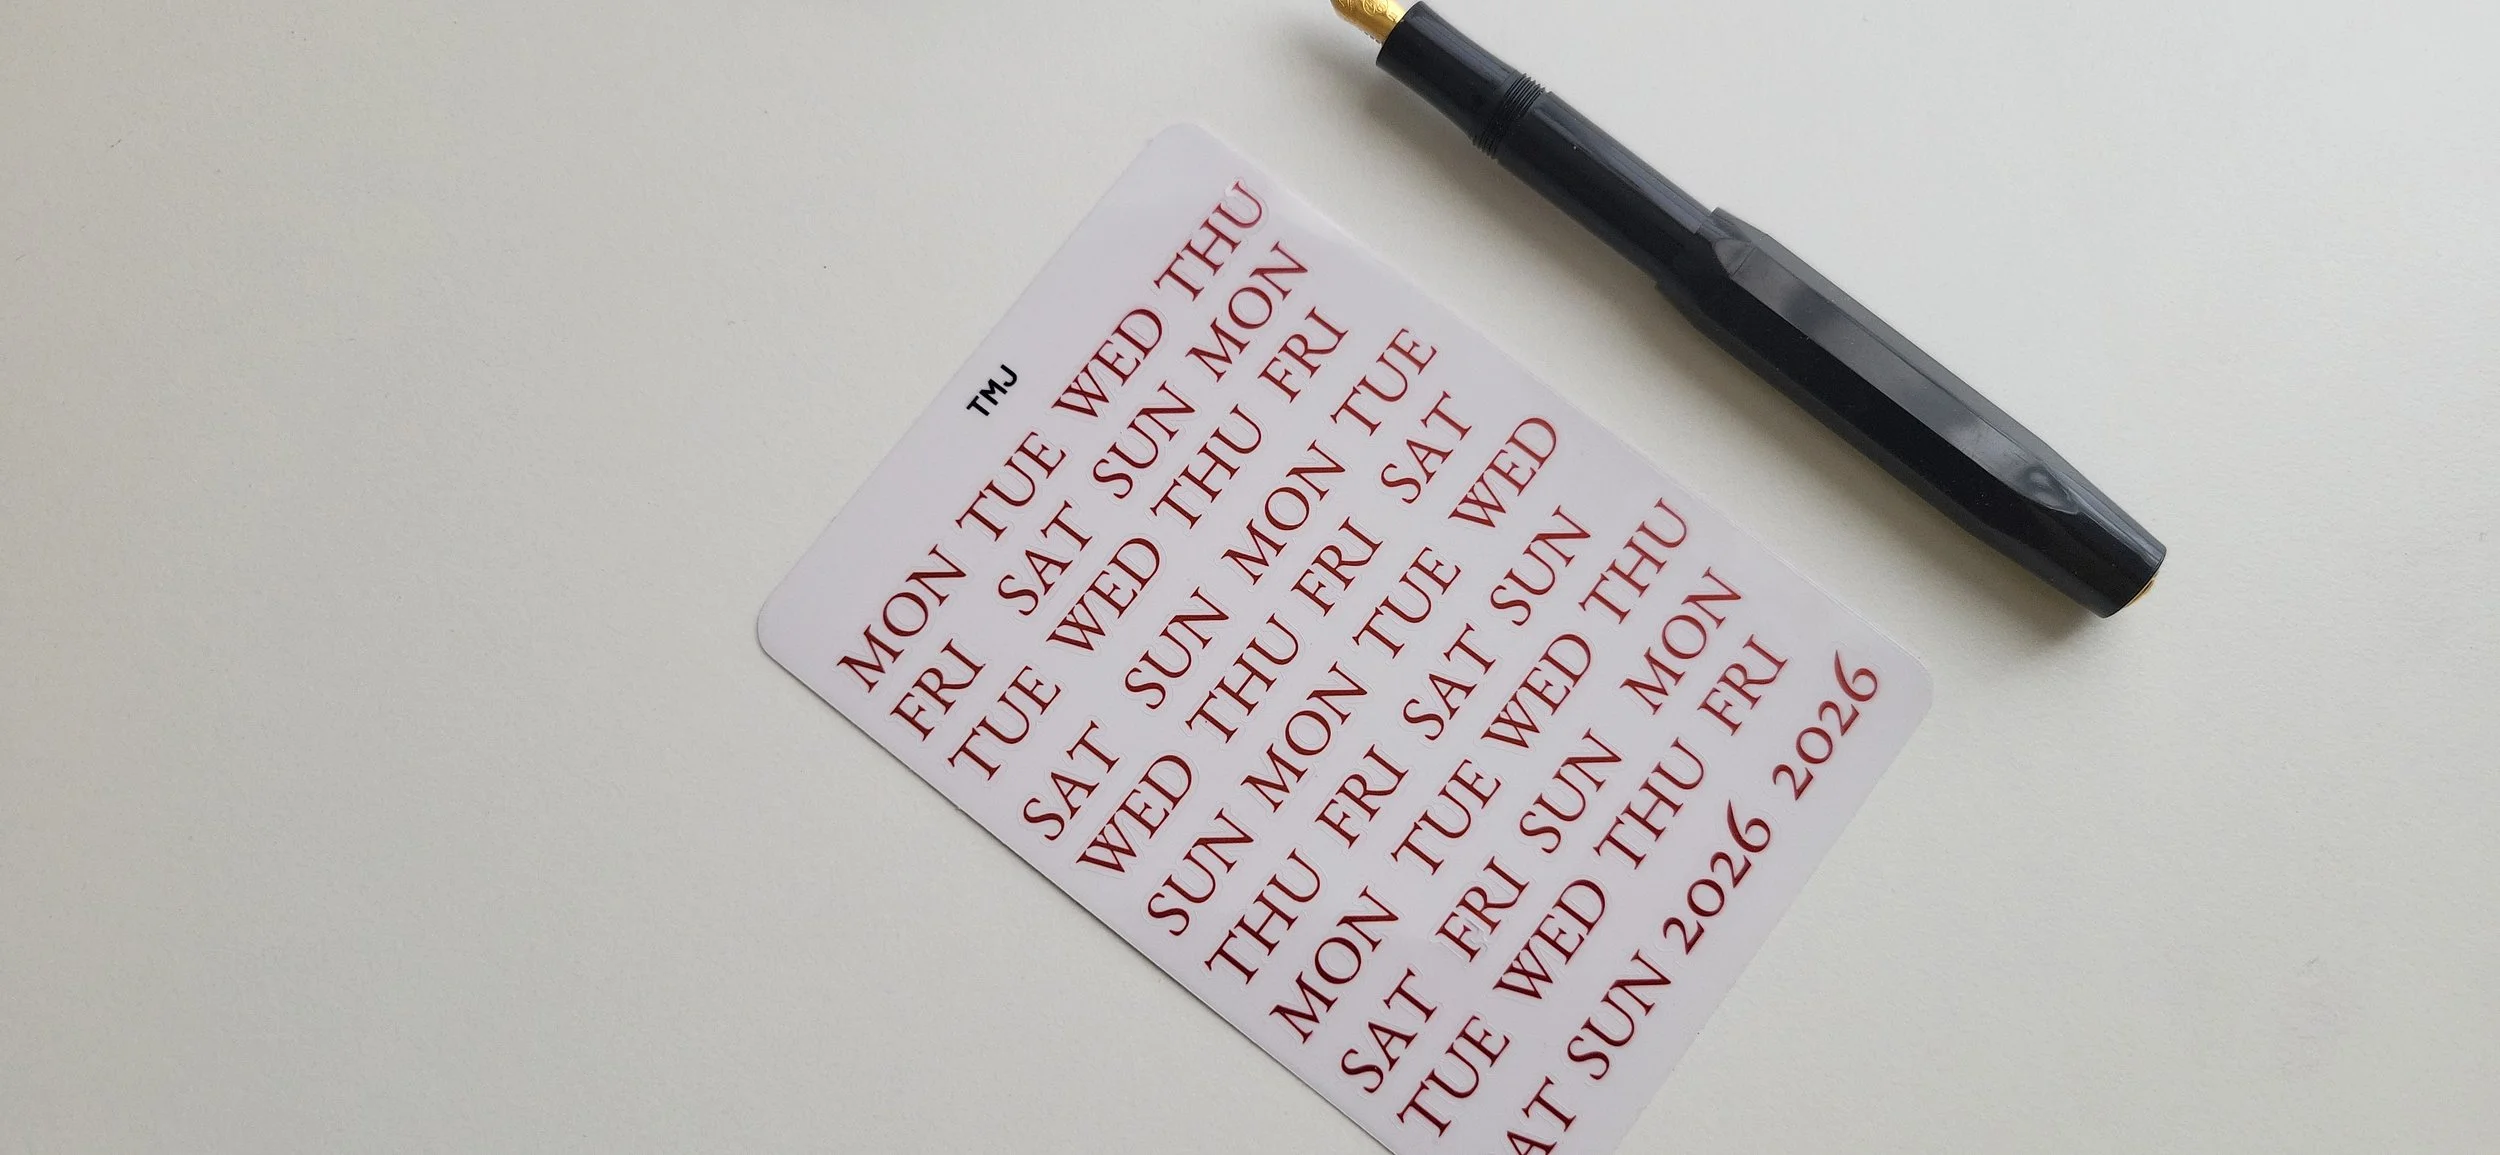 TMJ
MON TUE WED THU
FRI SAT SUN MON
TUE WED THU FRI
SAT SUN MON TUE
WED THU FRI SAT
SUN MON TUE WED
THU FRI SAT SUN
MON TUE WED THU
SAT FRI SUN MON
TUE WED THU FRI
AT SUN 2026 2026